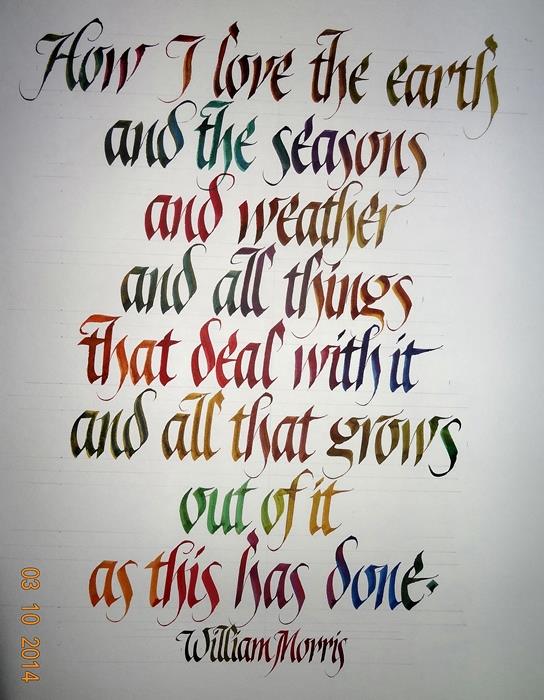 How I love the earth
and the seasons
and weather
and all things
that deal with it
and all that grows
out of it
as this has done.
William Morris
03 10 2014